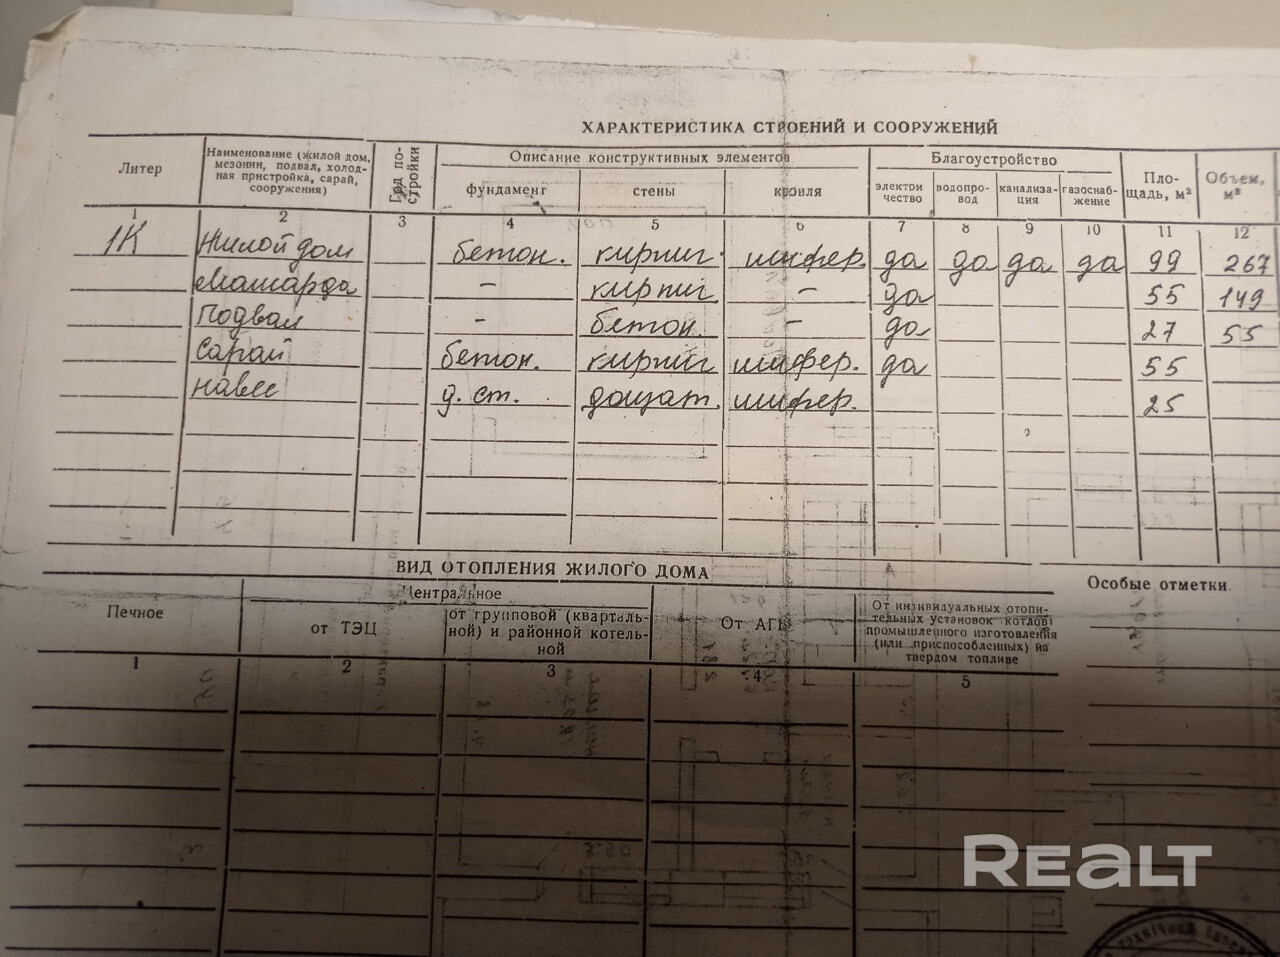 ХАРАКТЕРИСТИКА СТРОЕНИЙ И СООРУЖЕНИЙ
Литер
Наименование (жилой дом, мезонин, подвал, холодная пристройка, сарай, сооружения)
Год постройки
Описание конструктивных элементов
фундамент
стены
кровля
Благоустройство
электричество
водопровод
канализация
газоснабжение
Площадь, м²
Объем, м³
1 2 3 4 5 6 7 8 9 10 11 12
1К Жилой дом бетон. кирпич. шифер. да да да да 99 267
Мансарда – кирпич – да 55 149
Подвал – бетон. – да 27 55
Сарай бетон. кирпич шифер. да 55
навес д. ст. дощат. шифер. 25
ВИД ОТОПЛЕНИЯ ЖИЛОГО ДОМА
Особые отметки
Печное
Центральное
от ТЭЦ
от групповой (квартальной) и районной котельной
От АГВ
От индивидуальных отопительных установок (котлов) промышленного изготовления (или приспособленных) на твердом топливе
1 2 3 4 5
REALT